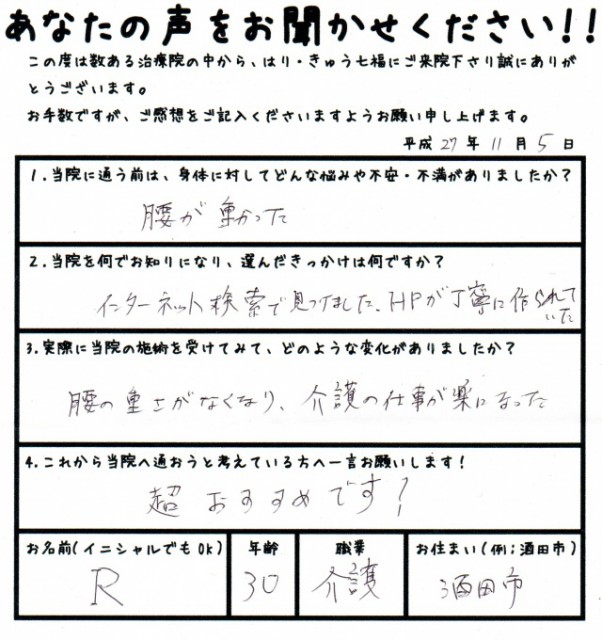 あなたの声をお聞かせください!!
この度は数ある治療院の中から、はり・きゅう七福にご来院下さり誠にありが
とうございます。
お手数ですが、ご感想をご記入くださいますようお願い申し上げます。
平成 27 年 11 月 5 日
1.当院に通う前は、身体に対してどんな悩みや不安・不満がありましたか?
腰が重かった
2.当院を何でお知りになり、選んだきっかけは何ですか?
インターネット検索で見つけました、HPが丁寧に作られて
いた
3.実際に当院の施術を受けてみて、どのような変化がありましたか?
腰の重さがなくなり、介護の仕事が楽になった
4.これから当院へ通おうと考えている方へ一言お願いします!
超おすすめです!
お名前(イニシャルでもOK) 年齢 職業 お住まい(例;酒田市)
R 30 介護 酒田市